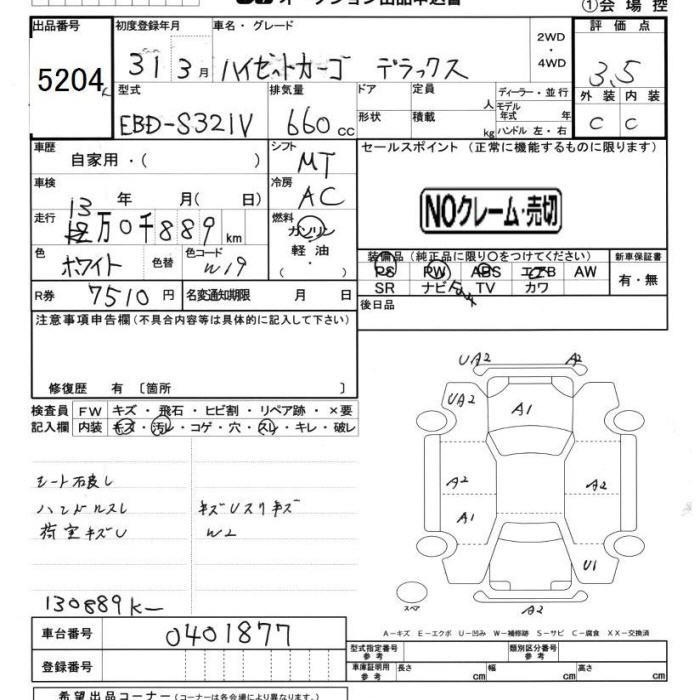 ①会場控
出品番号 初度登録年月 車名・グレード 2WD・4WD 評価点
5204 31 3月 ハイゼットカーゴ デラックス 3.5
型式 排気量 ドア 定員 人 ディーラー・並行 外装 内装
EBD-S321V 660cc 形状 積載 kg モデル年式 年 ハンドル 左・右 C C
車歴 自家用・( ) シフト MT セールスポイント (正常に機能するものに限ります)
車検 年 月( 日) 冷房 AC
走行 13万0千889km 燃料 ガソリン
軽油
・
( )
NOクレーム・売切
色 ホワイト 色替 色コード W19
装備品 (純正品に限り○をつけてください) 新車保証書
PS PW ABS エアB AW 有・無
SR ナビ TV カワ
R券 7510円 名変通知期限 月 日 後日品
注意事項申告欄(不具合内容等は具体的に記入して下さい)
修復歴 有 〔箇所 〕
検査員 FW キズ・飛石・ヒビ割・リペア跡・×要
記入欄 内装 キズ・汚レ・コゲ・穴・スレ・キレ・破レ
UA2 A2
UA2 A1
A2 A2
A1
U1
A2
スペア
シート汚良し
ハンドルスレ キズUスリキズ
荷室キズU W2
130889K
A-キズ E-エクボ U-凹み W-補修跡 S-サビ C-腐食 XX-交換済
車台番号 0401877
型式指定番号 参考 類別区分番号 参考
登録番号
車庫証明用 参考 長さ cm 幅 cm 高さ cm
希望出品コーナー (コーナーは各会場により異なります)